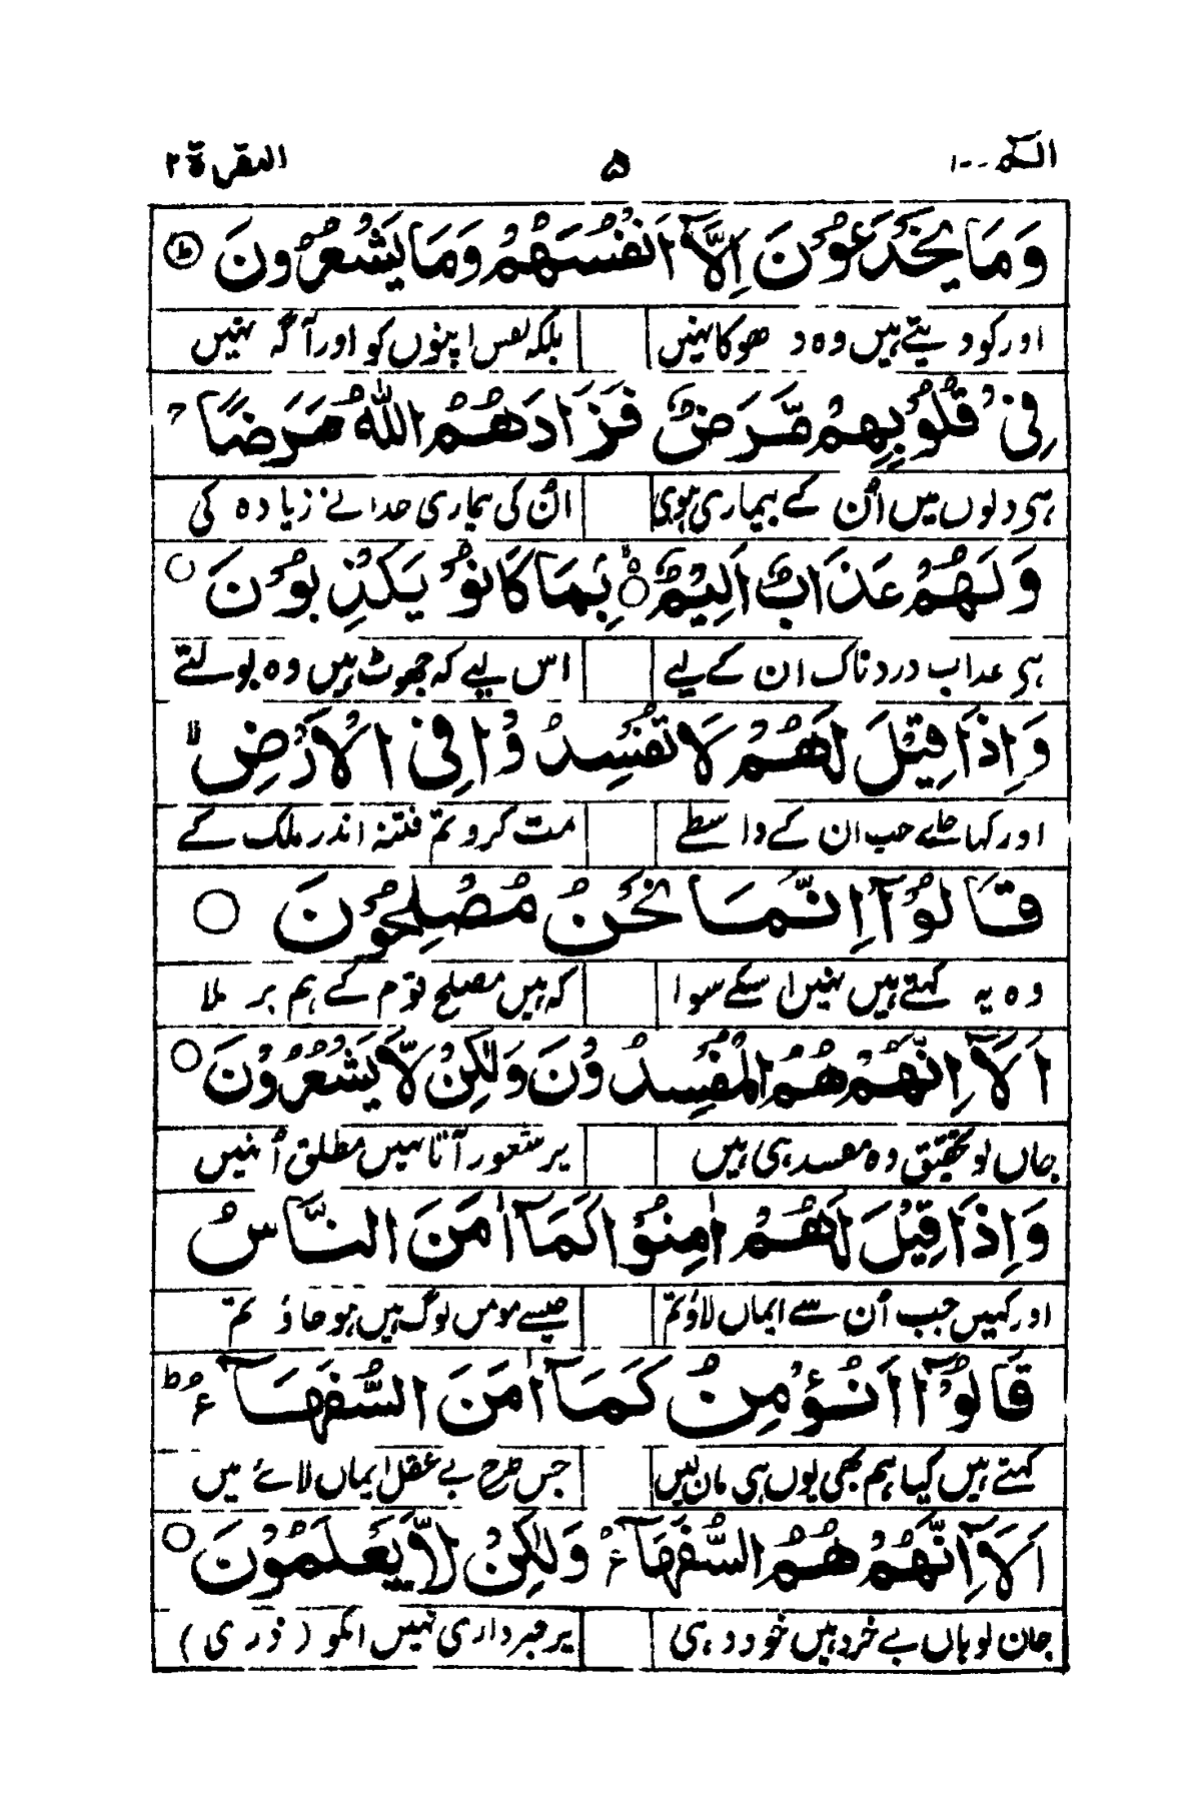 الٓمّٓ ۱-- ۵ البقرة ۲
وَمَا يَخْدَعُوْنَ اِلَّآ اَنْفُسَهُمْ وَمَا يَشْعُرُوْنَ ط
اور کو دیتے ہیں وہ دھوکا نہیں بلکہ نفس اپنوں کو اور آگہ نہیں
فِىْ قُلُوْبِهِمْ مَّرَضٌ فَزَادَهُمُ اللّٰهُ مَرَضًا ج
ہی دلوں میں اُن کے بیماری ہوئی اُن کی بیماری خدا نے زیادہ کی
وَلَهُمْ عَذَابٌ اَلِيْمٌ ۙ بِمَا كَانُوْ يَكْذِبُوْنَ ○
ہی عذاب دردناک ان کے لیے اس لیے کہ جھوٹ ہیں وہ بولتے
وَاِذَا قِيْلَ لَهُمْ لَا تُفْسِدُوْا فِى الْاَرْضِ ۙ
اور کہا جائے جب ان کے واسطے مت کرو تم فتنہ اندر ملک کے
قَالُوْٓا اِنَّمَا نَحْنُ مُصْلِحُوْنَ ○
وہ یہ کہتے ہیں نہیں اسکے سوا کہ ہیں مصلح قوم کے ہم بر ملا
اَلَآ اِنَّهُمْ هُمُ الْمُفْسِدُوْنَ وَلٰكِنْ لَّا يَشْعُرُوْنَ ○
جاں لو تحقیق وہ مفسد ہی ہیں پر شعور آتا نہیں مطلق اُنہیں
وَاِذَا قِيْلَ لَهُمْ اٰمِنُوْا كَمَآ اٰمَنَ النَّاسُ
اور کہیں جب اُن سے ایماں لاؤ تم جیسے مومن لوگ ہیں ہو جاؤ تم
قَالُوْٓا اَنُؤْمِنُ كَمَآ اٰمَنَ السُّفَهَآءُ ط
کہتے ہیں کیا ہم بھی یوں ہی مان لیں جس طرح بے عقل ایماں لائے ہیں
اَلَآ اِنَّهُمْ هُمُ السُّفَهَآءُ وَلٰكِنْ لَّا يَعْلَمُوْنَ ○
جان لو ہاں بے خرد ہیں خود وہی پر خبرداری نہیں انکو (ذری)